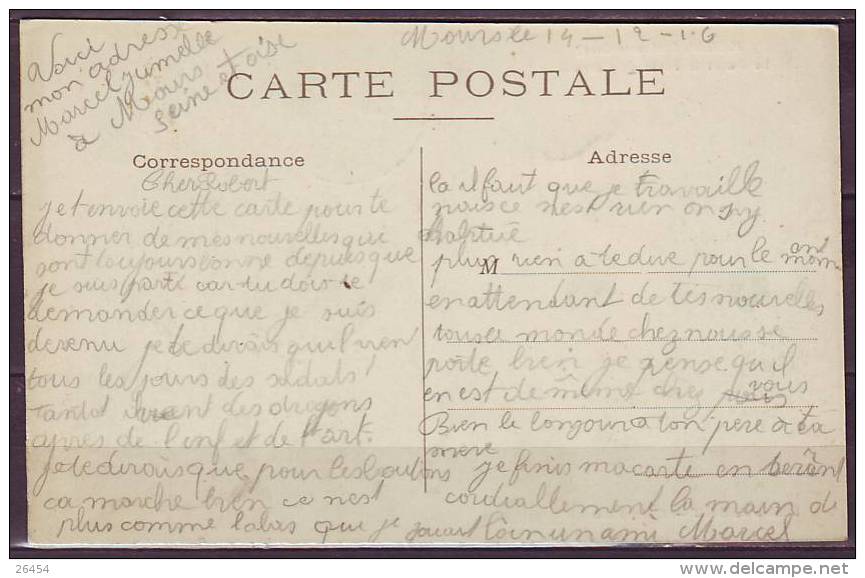 Voici
mon adresse
Marcel Jumelle
à Mours
Seine et oise
Mours le 14 - 12 - 16
CARTE POSTALE
Correspondance
Adresse
Cher Robert
je tenvoie cette carte pour te
donner de mes nouvelles qui
sont toujours bonne depuis que
je suis parti car tu dois te
demander ce que je suis
devenu je te dirais quil vien
tous les jours des soldats
tantot vient des dragons
apres de l'inf et de l'art.
je te dirais que pour les boutons
ca marche bien ce n'est
plus comme labas que je jouait
la il faut que je travaille
mais ce n'est rien on s'y
habitue
plus rien a te dire pour le moment
M
en attendant de tes nouvelles
tous ce monde chez nous se
porte bien je pense qu il
en est de même chez vous
Bien le bonjour a ton père a ta
mere
je finis ma carte en serrant
cordiallement la main de
loin un ami Marcel
26454
delcampe.net